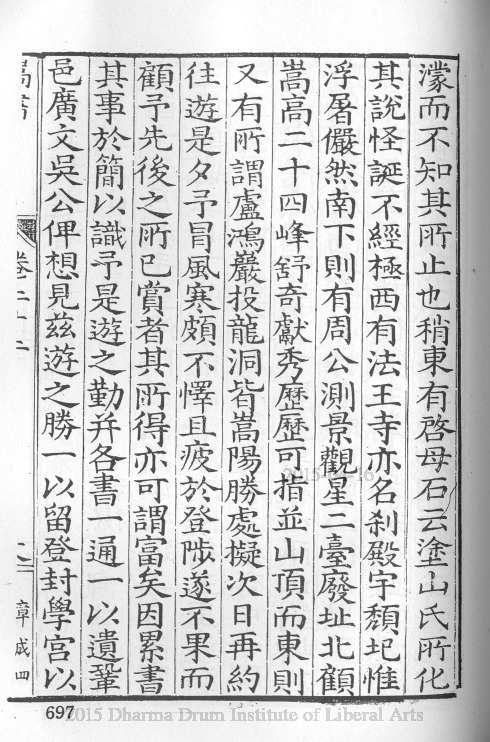 濛而不知其所止也稍東有啓母石云塗山氏所化
其說怪誕不經極西有法王寺亦名刹殿宇頽圮惟
浮屠儼然南下則有周公測景觀星二臺廢址北顧
嵩高二十四峰舒奇獻秀歷歷可指並山頂而東則
又有所謂盧鴻巖投龍洞皆嵩陽勝處擬次日再約
往遊是夕予冐風寒頗不懌且疲於登陟遂不果而
顧予先後之所已賞者其所得亦可謂富矣因累書
其事於簡以識予是遊之勤并各書一通一以遺鞏
邑廣文吳公俾想見茲遊之勝一以留登封學宫以
嵩書
卷二十二
章成四
697
2015 Dharma Drum Institute of Liberal Arts